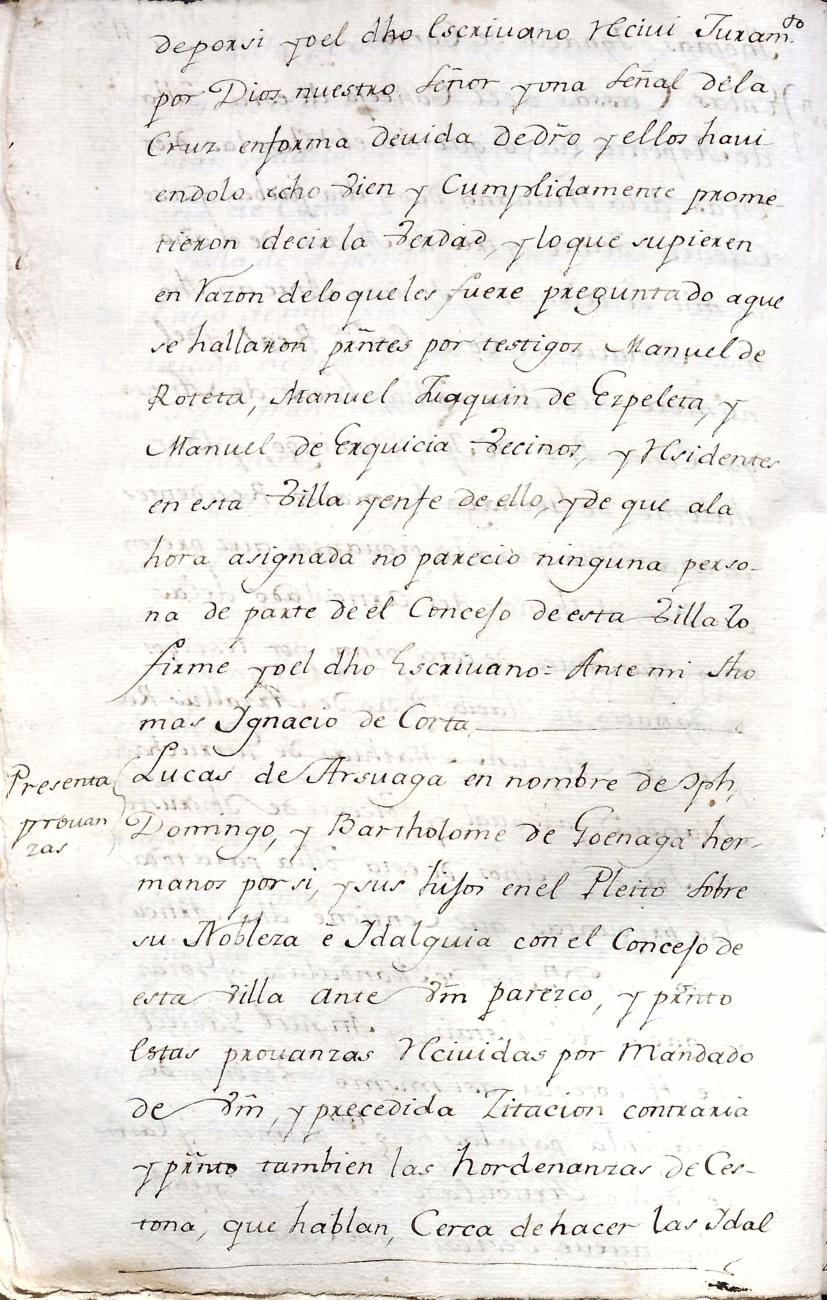 de por si yo el dho Escrivano Recivi Juramto
por Dios nuestro Señor y una Señal de la
Cruz en forma devida de dro, y ellos havi
endolo echo vien y Cumplidamente prome-
tieron decir la Verdad, y lo que supieren
en Razon delo que les fuere preguntado a que
se hallaron prntes por testigos Manuel de
Roteta, Manuel Juaquin de Ezpeleta, y
Manuel de Erquicia Vecinos, y Residentes
en esta Villa y en fe de ello, y de que ala
hora asignada no parecio ninguna perso-
na de parte de el Concejo de esta Villa lo
firme yo el dho Escrivano = Ante mi Tho
mas Ygnacio de Corta
Presenta
provan
zas
Lucas de Arsuaga en nombre de Jph,
Domingo, y Bartholome de Goenaga her-
manos por si, y sus hijos en el Pleito sobre
su Nobleza e Idalguia con el Concejo de
esta villa ante Vm parezco, y prnto
Estas provanzas Recividas por Mandado
de Vm, y precedida Zitacion contraria
y prnto tambien las hordenanzas de Ces-
tona, que hablan, Cerca de hacer las Idal